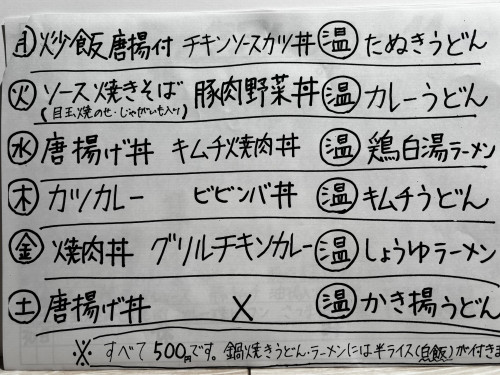 ㊊ 炒飯 唐揚付 チキンソースカツ丼 温 たぬきうどん
㊋ ソース焼きそば 豚肉野菜丼 温 カレーうどん
(目玉焼のせ・じゃがいも入り)
㊌ 唐揚げ丼 キムチ焼肉丼 温 鶏白湯ラーメン
㊍ カツカレー ビビンバ丼 温 キムチうどん
㊎ 焼肉丼 グリルチキンカレー 温 しょうゆラーメン
㊏ 唐揚げ丼 × 温 かき揚うどん
※ すべて500円です。鍋焼きうどん・ラーメンには半ライス(白飯)が付きま